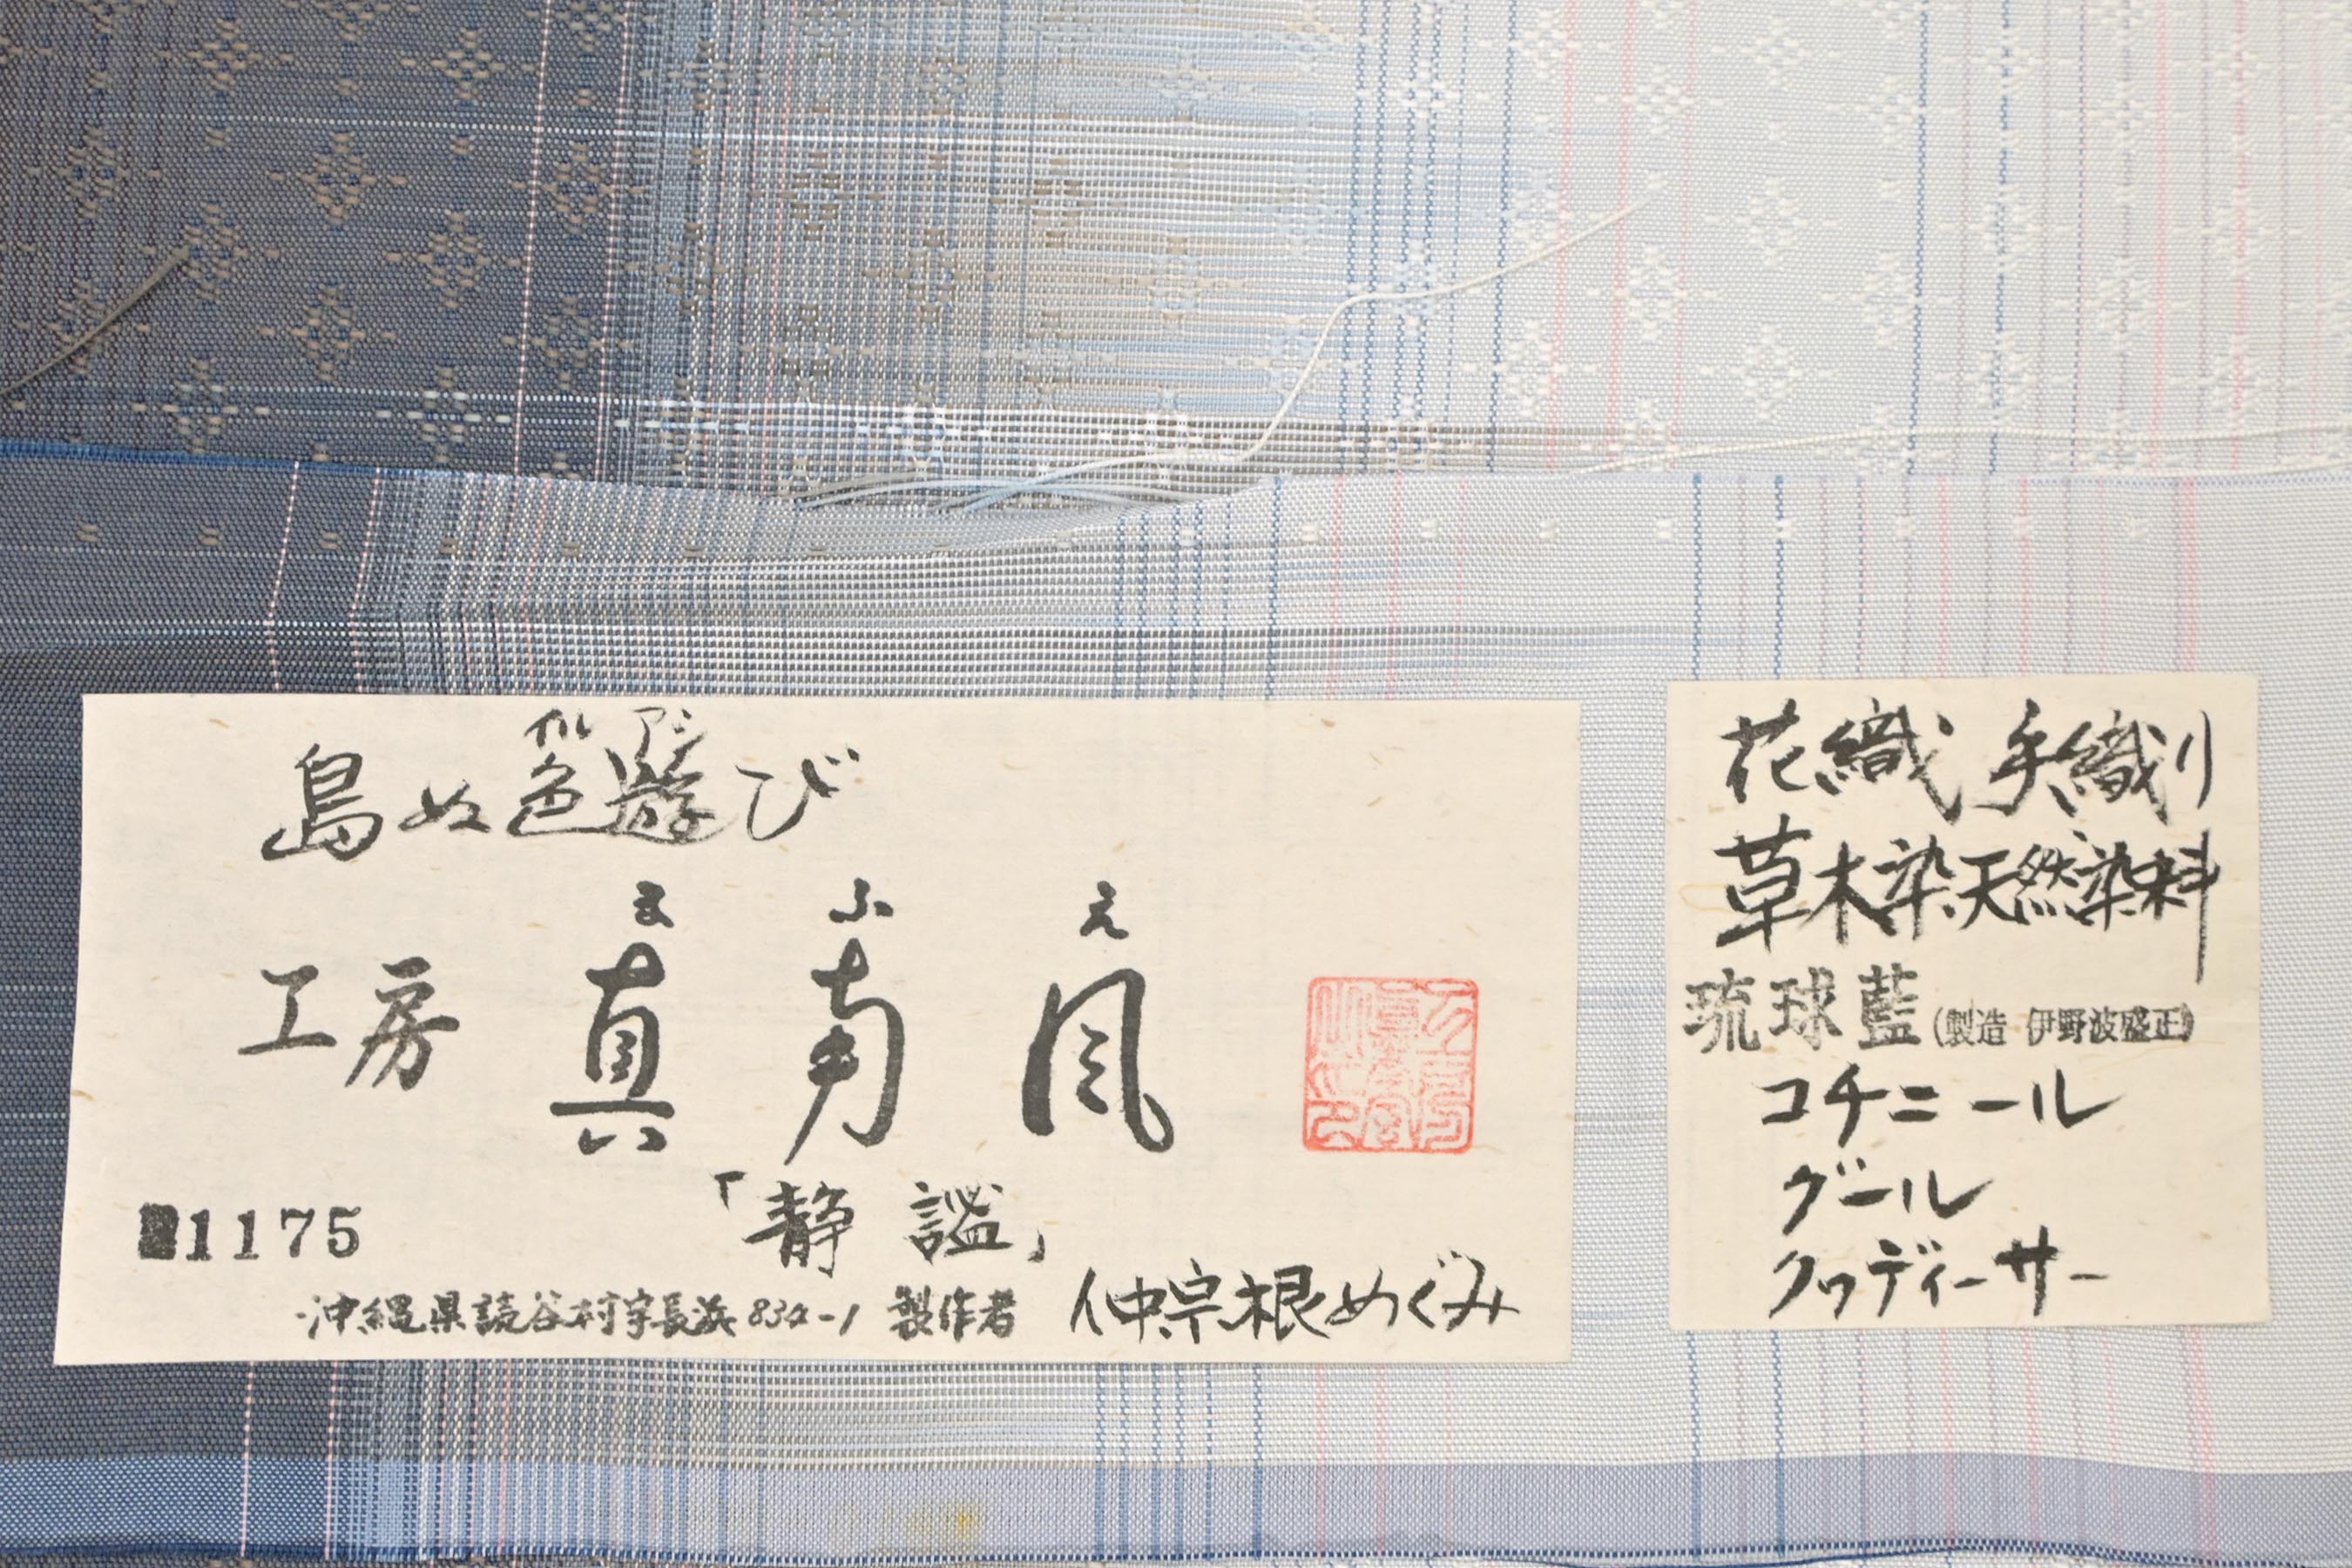 イル アシ
島ぬ色遊び
ま ふ え
工房 真南風
「静謐」
1175
沖縄県読谷村字長浜 834-1 製作者 仲宗根めぐみ
花織 手織り
草木染天然染料
琉球藍(製造 伊野波盛正)
コチニール
グール
クヮディーサー